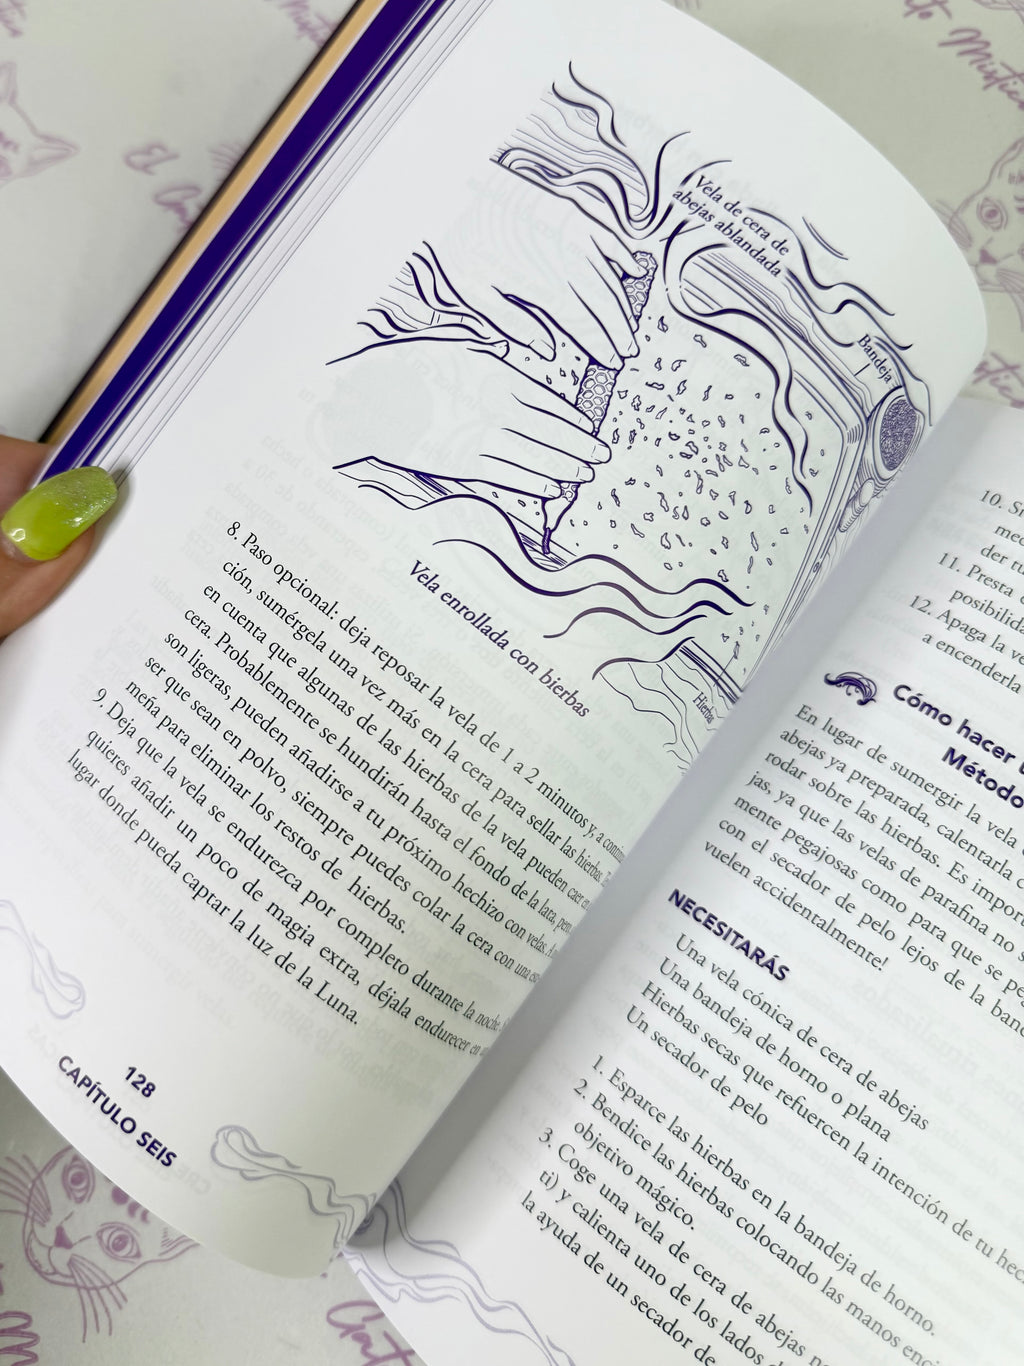 Vela de cera de
abejas ablandada
Bandeja
Hierba
Vela enrollada con hierbas
8. Paso opcional: deja reposar la vela de 1 a 2 minutos y, a
ción, sumérgela una vez más en la cera para sellar las hierbas.
en cuenta que algunas de las hierbas de la vela pueden caer en
cera. Probablemente se hundirán hasta el fondo de la lata, pero
son ligeras, pueden añadirse a tu próximo hechizo con velas. A
ser que sean en polvo, siempre puedes colar la cera con una
meña para eliminar los restos de hierbas.
9. Deja que la vela se endurezca por completo durante la noche.
quieres añadir un poco de magia extra, déjala endurecer en
lugar donde pueda captar la luz de la Luna.
128
CAPÍTULO SEIS
10.
11. Presta
12. Apaga la
a encenderla
Cómo hacer
Método
En lugar de sumergir la vela
abejas ya preparada, calentarla
rodar sobre las hierbas. Es
jas, ya que las velas de parafina no
mente pegajosas como para que se
con el secador de pelo lejos de la
vuelen accidentalmente!
NECESITARÁS
Una vela cónica de cera de abejas
Una bandeja de horno o plana
Hierbas secas que refuercen la intención de tu
Un secador de pelo
1. Esparce las hierbas en la bandeja de horno.
2. Bendice las hierbas colocando las manos
objetivo mágico.
3. Coge una vela de cera de abejas
ti) y calienta uno de los lados
la ayuda de un secador de